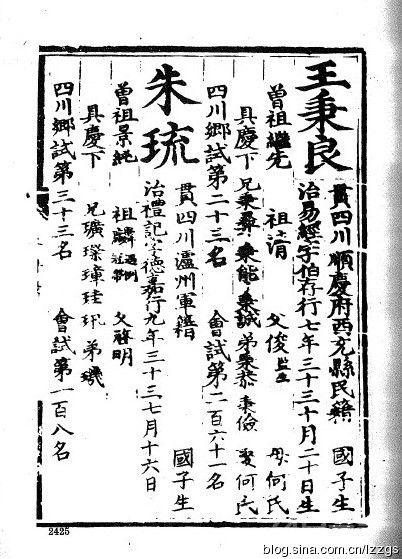 王秉良
貫四川順慶府西充縣民籍 國子生
治易經字伯存行七年三十三十月二十日生
曾祖繼先 祖清 父俊監生 母何氏
具慶下 兄秉彝 秉能 秉誠 弟秉恭 秉儉 娶何氏
四川鄉試第二十三名 會試第二百六十一名
朱琉
貫四川瀘州軍籍 國子生
治禮記字德嘉行九年三十三七月十六日
曾祖景純 祖麟 父啓明
具慶下 兄礦 璨 瑋 珪 弟璣
四川鄉試第三十三名 會試第一百八名
2425
blog.sina.com.cn/lzzgs